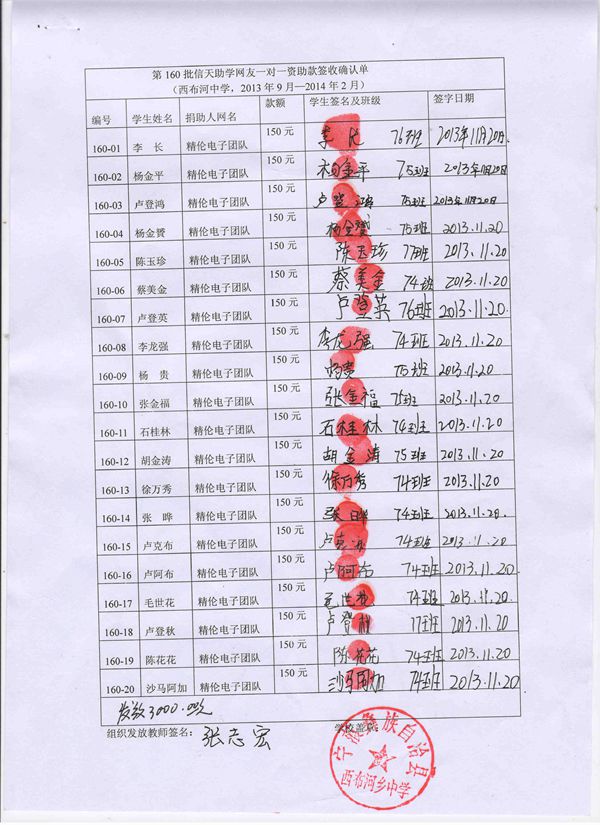 第 160 批信天助学网友一对一资助款签收确认单
(西布河中学，2013 年 9 月—2014 年 2 月)
编号 学生姓名 捐助人网名 款额 学生签名及班级 签字日期
160-01 李 长 精伦电子团队 150 元 李长 76班 2013年11月20日
160-02 杨金平 精伦电子团队 150 元 杨金平 75班 2013年11月20日
160-03 卢登鸿 精伦电子团队 150 元 卢登鸿 75班 2013年11月20日
160-04 杨金赟 精伦电子团队 150 元 杨金赟 75班 2013.11.20
160-05 陈玉珍 精伦电子团队 150 元 陈玉珍 77班 2013.11.20
160-06 蔡美金 精伦电子团队 150 元 蔡美金 74班 2013.11.20
160-07 卢登英 精伦电子团队 150 元 卢登英 76班 2013.11.20
160-08 李龙强 精伦电子团队 150 元 李龙强 74班 2013.11.20
160-09 杨 贵 精伦电子团队 150 元 杨贵 75班 2013.11.20
160-10 张金福 精伦电子团队 150 元 张金福 75班 2013.11.20
160-11 石桂林 精伦电子团队 150 元 石桂林 74班 2013.11.20
160-12 胡金涛 精伦电子团队 150 元 胡金涛 75班 2013.11.20
160-13 徐万秀 精伦电子团队 150 元 徐万秀 74班 2013.11.20
160-14 张 晔 精伦电子团队 150 元 张晔 74班 2013.11.20
160-15 卢克布 精伦电子团队 150 元 卢克布 74班 2013.11.20
160-16 卢阿布 精伦电子团队 150 元 卢阿布 74班 2013.11.20
160-17 毛世花 精伦电子团队 150 元 毛世花 74班 2013.11.20
160-18 卢登秋 精伦电子团队 150 元 卢登秋 17班 2013.11.20
160-19 陈花花 精伦电子团队 150 元 陈花花 74班 2013.11.20
160-20 沙马阿加 精伦电子团队 150 元 沙马阿加 74班 2013.11.20
发放3000.00元
组织发放教师签名： 张志宏 学校盖章：
宁蒗彝族自治县
西布河乡中学